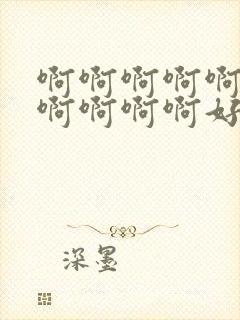 啊啊啊啊啊
啊啊啊啊好
深墨